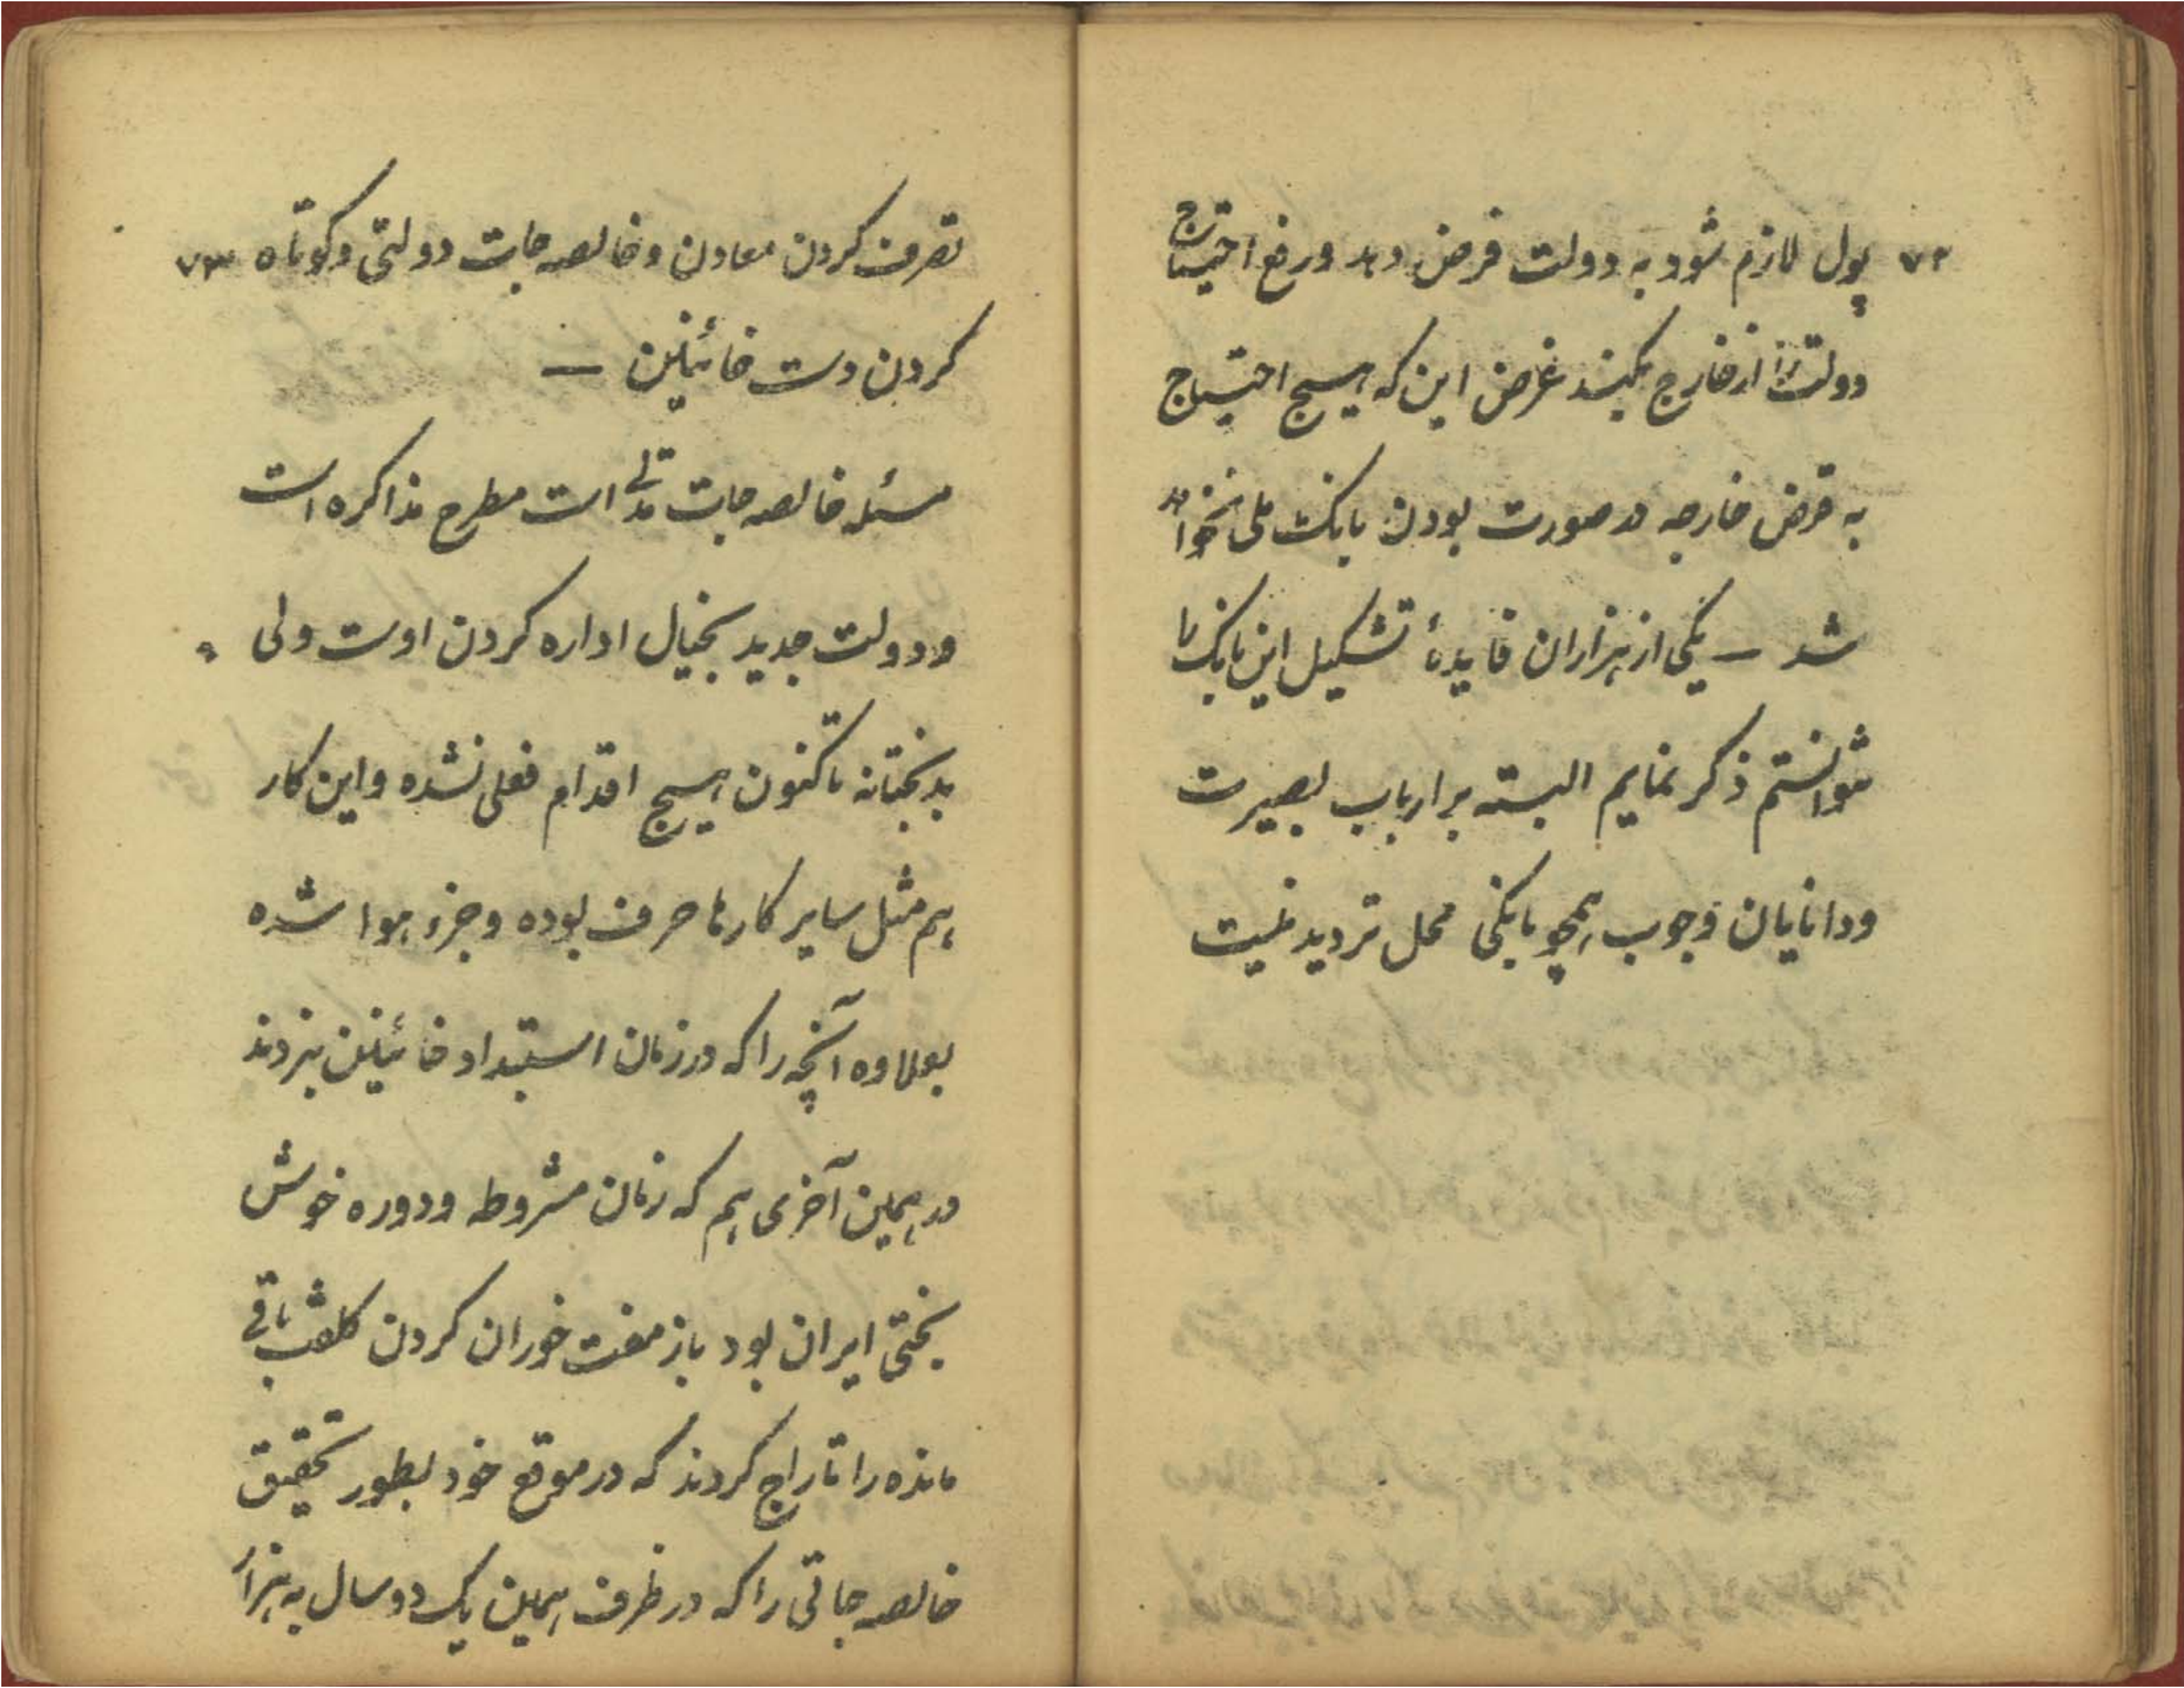 ۷۲
پول لازم شود به دولت قرض دهد و رفع احتیاج
دولت را از خارج بکیند غرض این که هیچ احتیاج
به قرض خارجه در صورت بودن بانک ملی نخواهد
شد — یکی از هزاران فایدهٔ تشکیل این بانک را
نتوانستم ذکر نمایم البته بر ارباب بصیرت
و دانایان وجوب همچو بانکی محل تردید نیست
۷۳
تصرف کردن معادن و خالصه جات دولتی و کوتاه
کردن دست خائینین —
مسئله خالصه جات مدتی است مطرح مذاکره است
و دولت جدید بخیال اداره کردن اوست ولی
بدبختانه تا کنون هیچ اقدام فعلی نشده و این کار
هم مثل سایر کارها حرف بوده و جزء هوا شده
بعلاوه آنچه را که در زمان استبداد خائینین بردند
در همین آخری هم که زمان مشروطه و دوره خوش
بختی ایران بود باز مفت خوران کردن کلفت باقی
مانده را تاراج کردند که در موقع خود بطور تحقیق
خالصه جاتی را که در ظرف همین یک دو سال به هزار